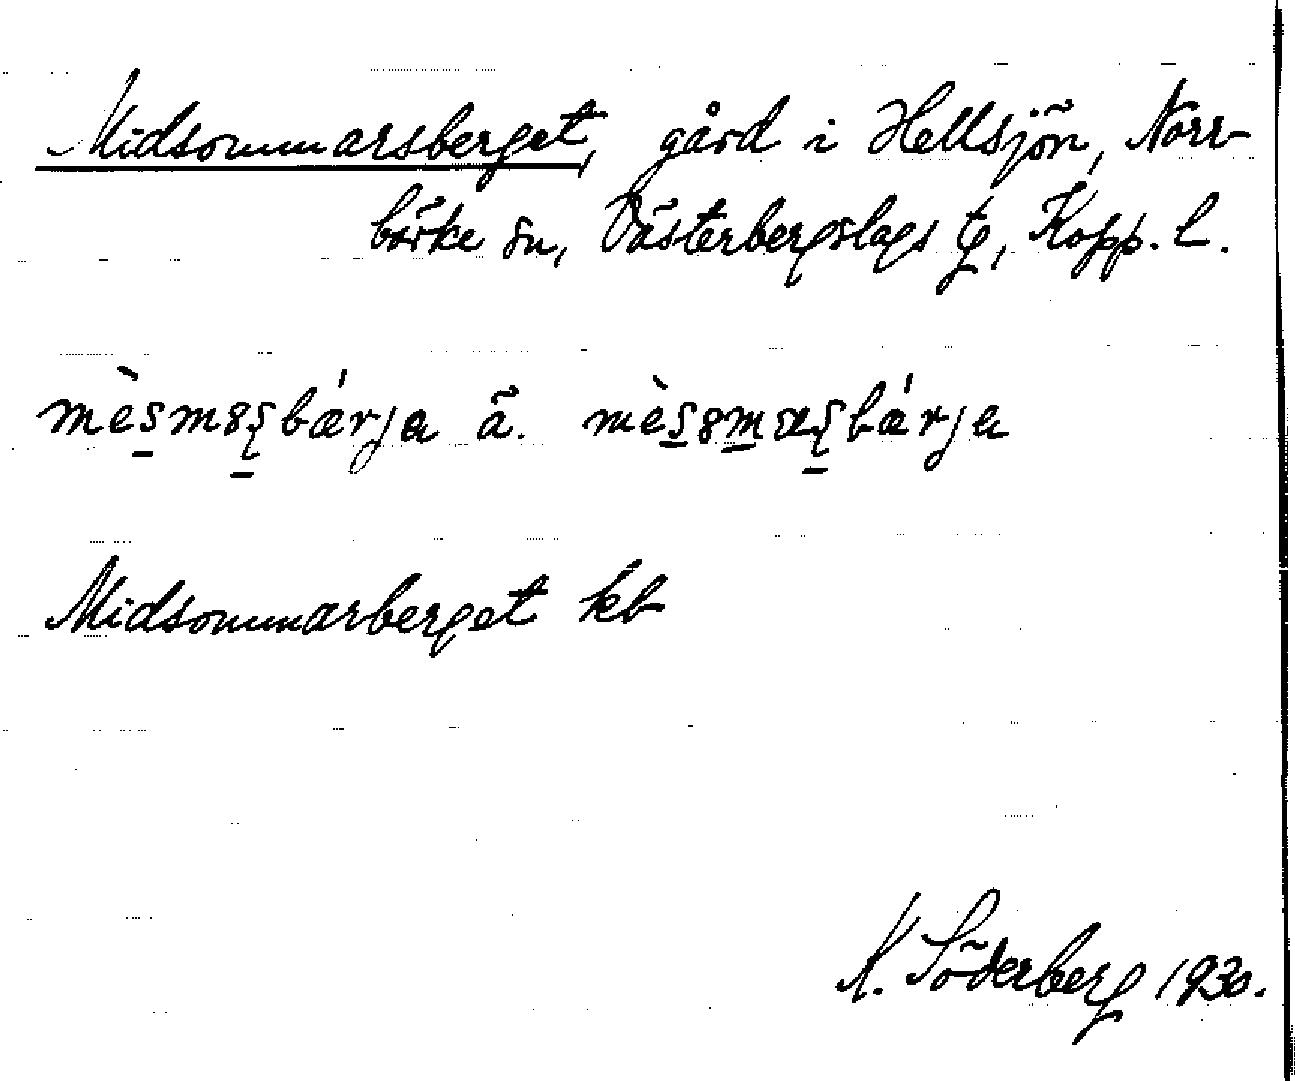 Midsommarsberget, gård i Hellsjön, Norr-
bärke sn, Västerbergslags tg, Kopp. l.
mèsmȣʂbærja ä. mèsȣmaʂbærja
Midsommarberget kb
N. Söderberg 1930.